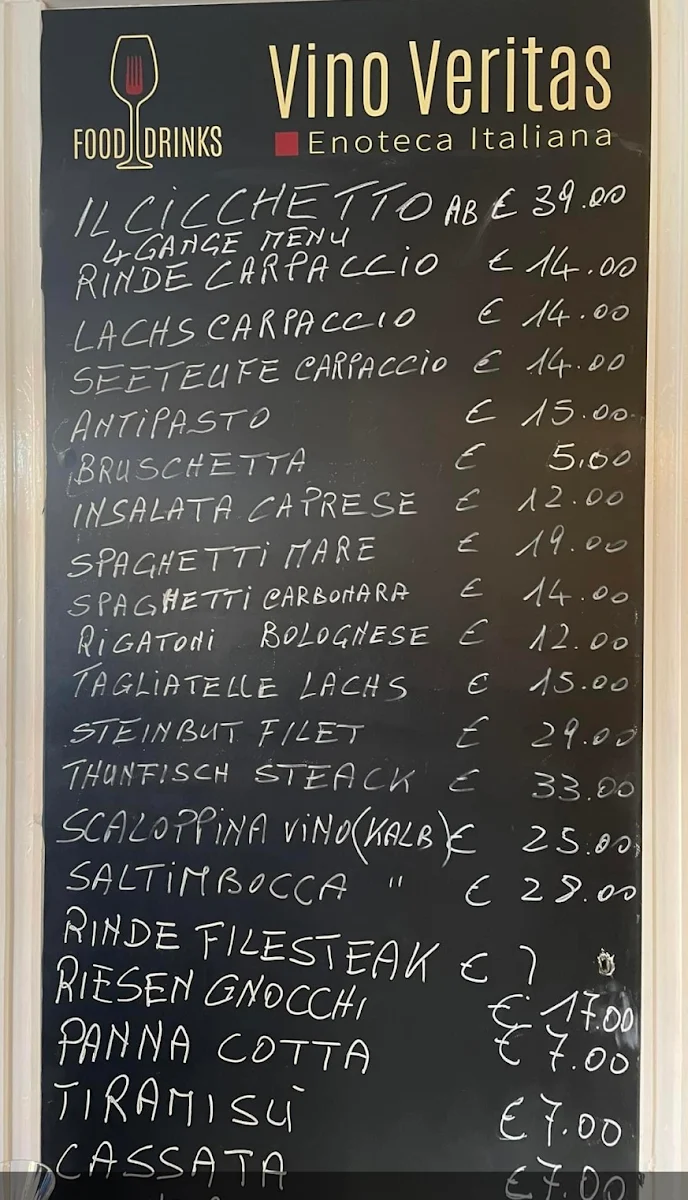 FOOD DRINKS
Vino Veritas
Enoteca Italiana
IL CICCHETTO AB € 39.00
4 GANGE MENU
RINDE CARPACCIO € 14.00
LACHS CARPACCIO € 14.00
SEETEUFE CARPACCIO € 14.00
ANTIPASTO € 15.00
BRUSCHETTA € 5.00
INSALATA CAPRESE € 12.00
SPAGHETTI MARE € 19.00
SPAGHETTI CARBONARA € 14.00
RIGATONI BOLOGNESE € 12.00
TAGLIATELLE LACHS € 15.00
STEINBUT FILET € 29.00
THUNFISCH STEACK € 33.00
SCALOPPINA VINO (KALB) € 25.00
SALTIMBOCCA " € 28.00
RINDE FILESTEAK € ?
RIESEN GNOCCHI € 17.00
PANNA COTTA € 7.00
TIRAMISÙ € 7.00
CASSATA € 7.00